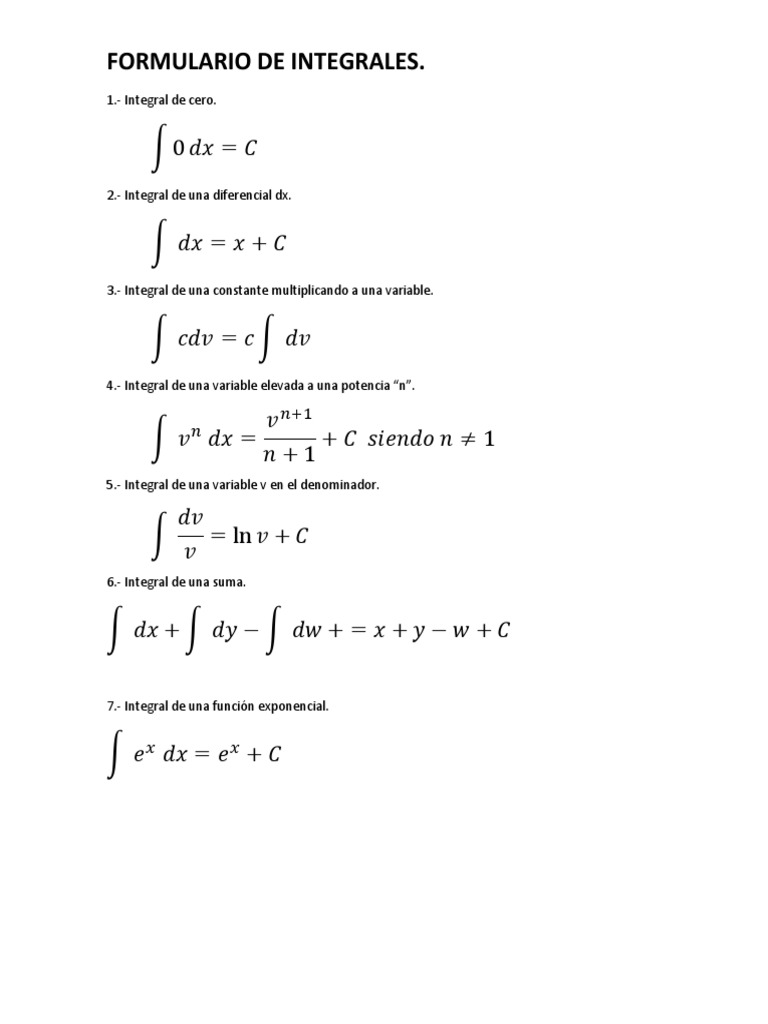 FORMULARIO DE INTEGRALES.
1.- Integral de cero.
∫ 0 dx = C
2.- Integral de una diferencial dx.
∫ dx = x + C
3.- Integral de una constante multiplicando a una variable.
∫ cdv = c ∫ dv
4.- Integral de una variable elevada a una potencia “n”.
∫ vⁿ dx = vⁿ⁺¹ / n + 1 + C siendo n ≠ 1
5.- Integral de una variable v en el denominador.
∫ dv / v = ln v + C
6.- Integral de una suma.
∫ dx + ∫ dy − ∫ dw + = x + y − w + C
7.- Integral de una función exponencial.
∫ eˣ dx = eˣ + C